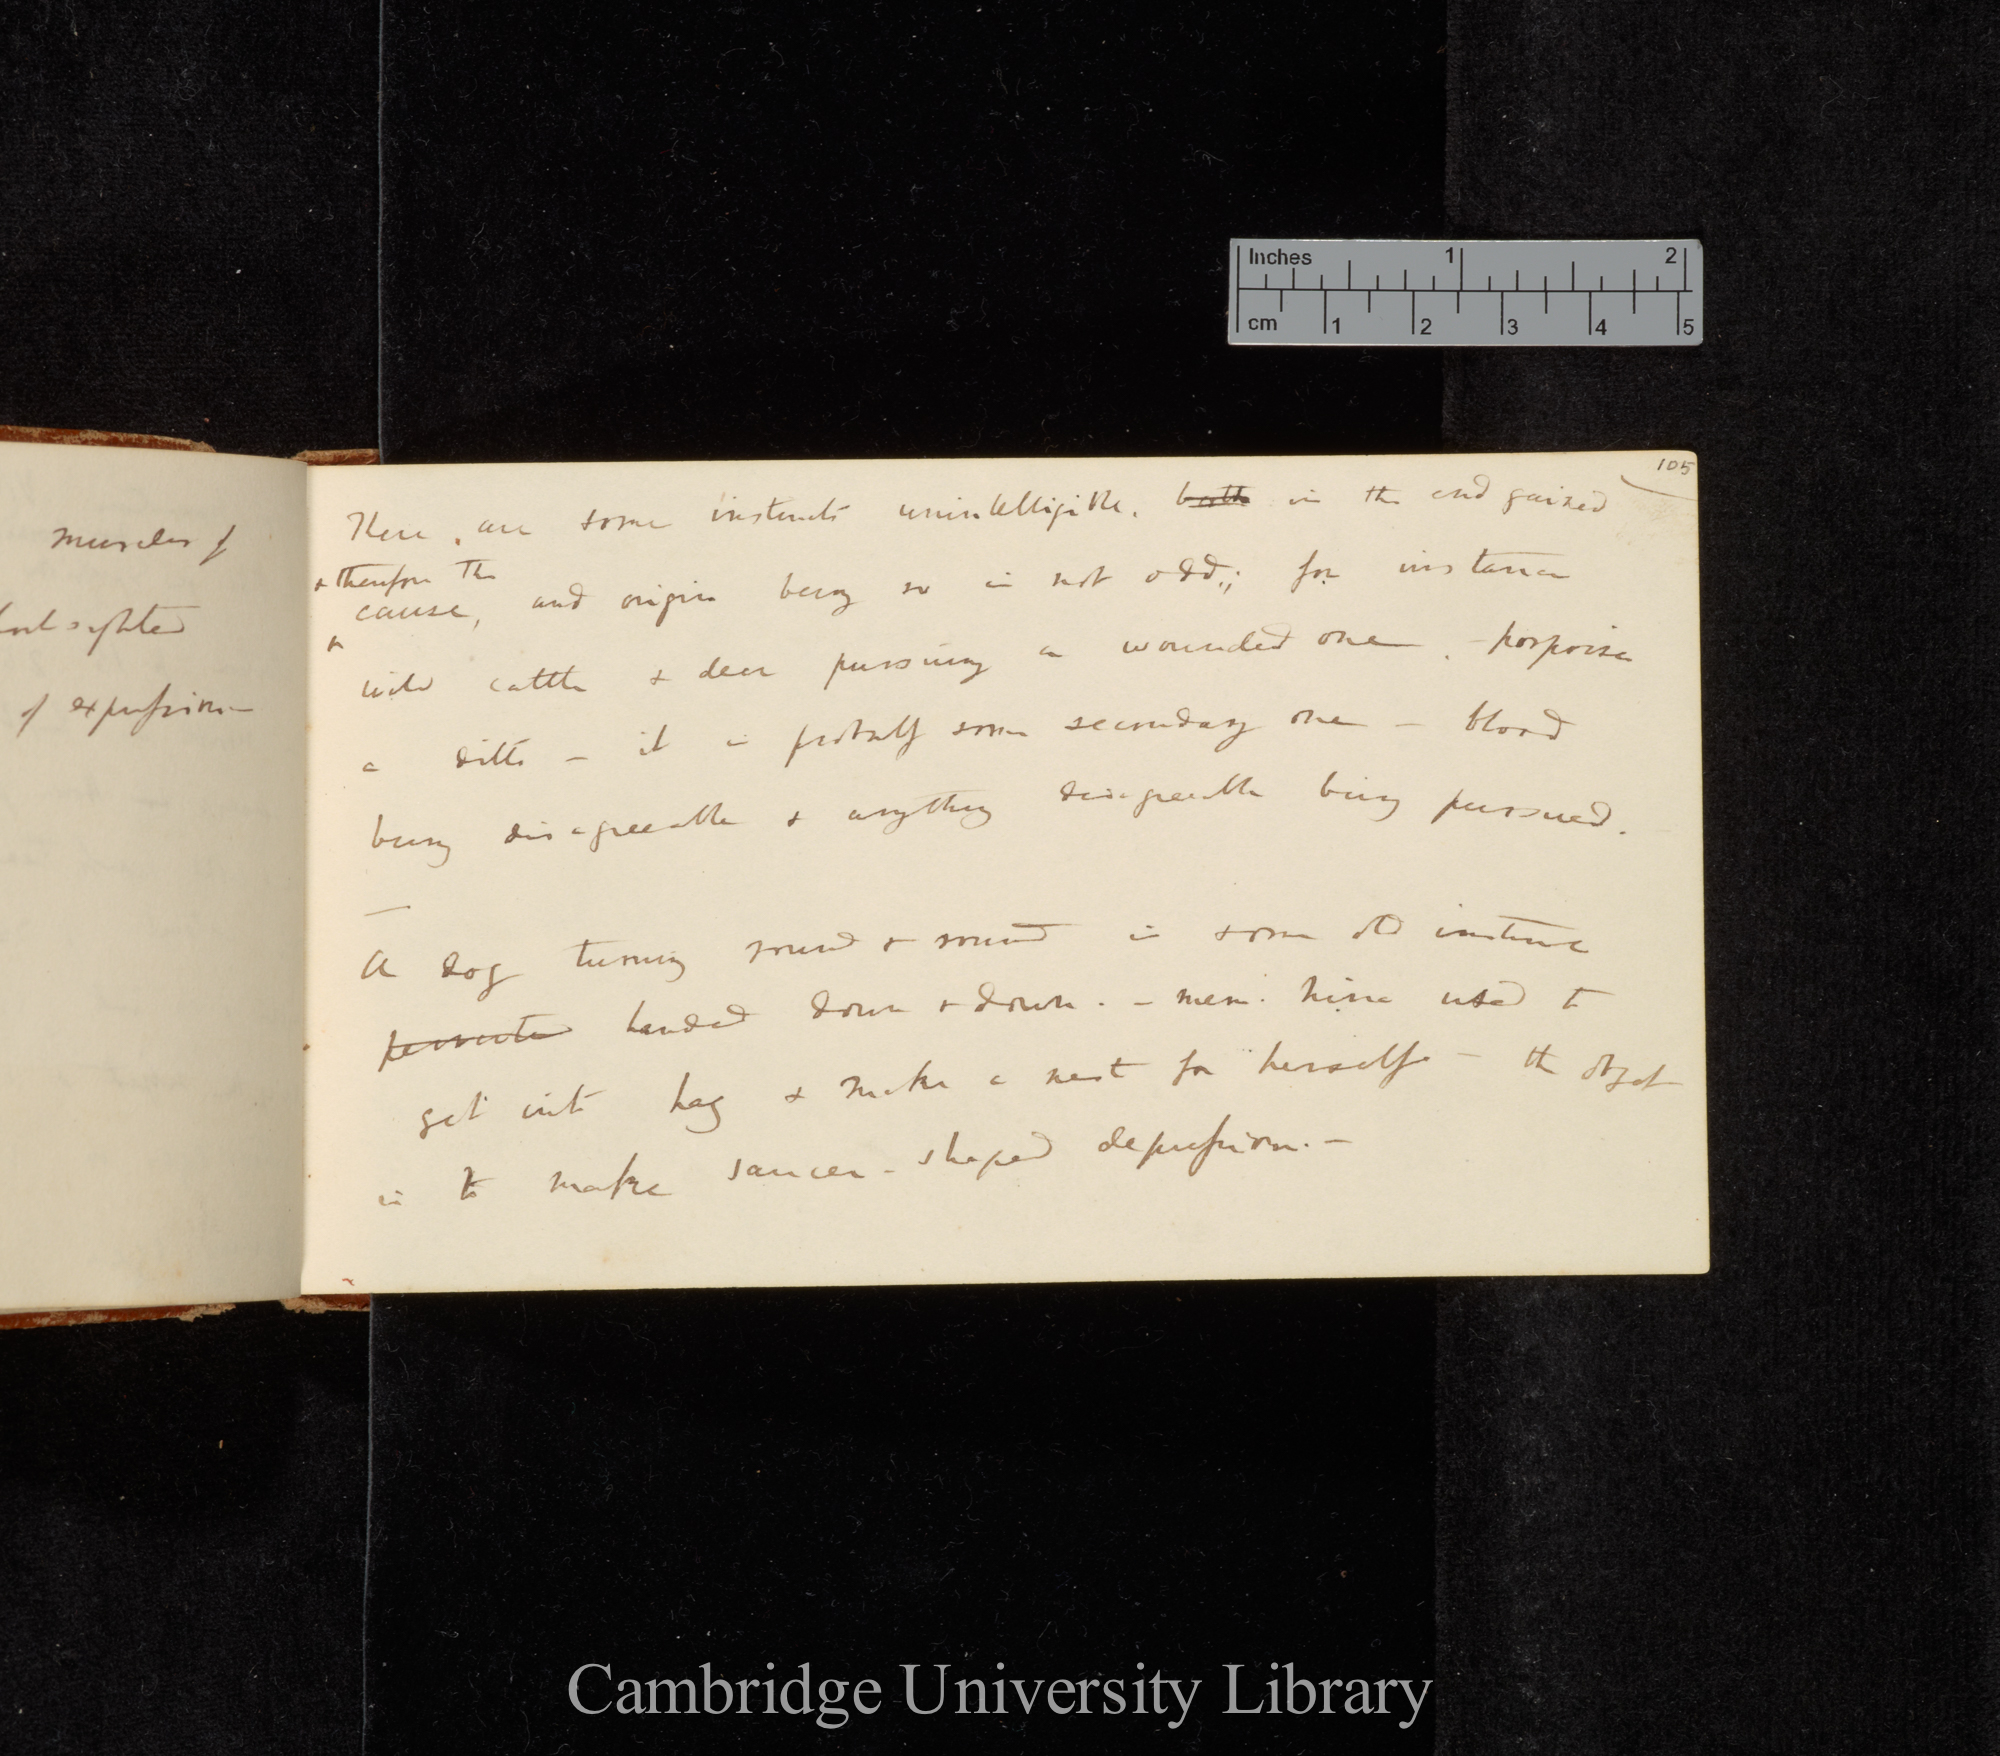 muscles of
of expression
105
There, are some instincts unintelligible, both in the end gained
& therefore the
cause, and origin being so is not odd.; for instance
wild cattle & deer pursuing a wounded one. - porpoise
a ditto – it is probably some secondary one – blood
being disagreeable & anything disagreeable being pursued.
—
A dog turning round & round is some old instinct
handed down & down. – mem. Nina used to
get into hay & make a nest for herself – the object
is to make saucer-shaped depression. –
Inches 1 2
cm 1 2 3 4 5
Cambridge University Library